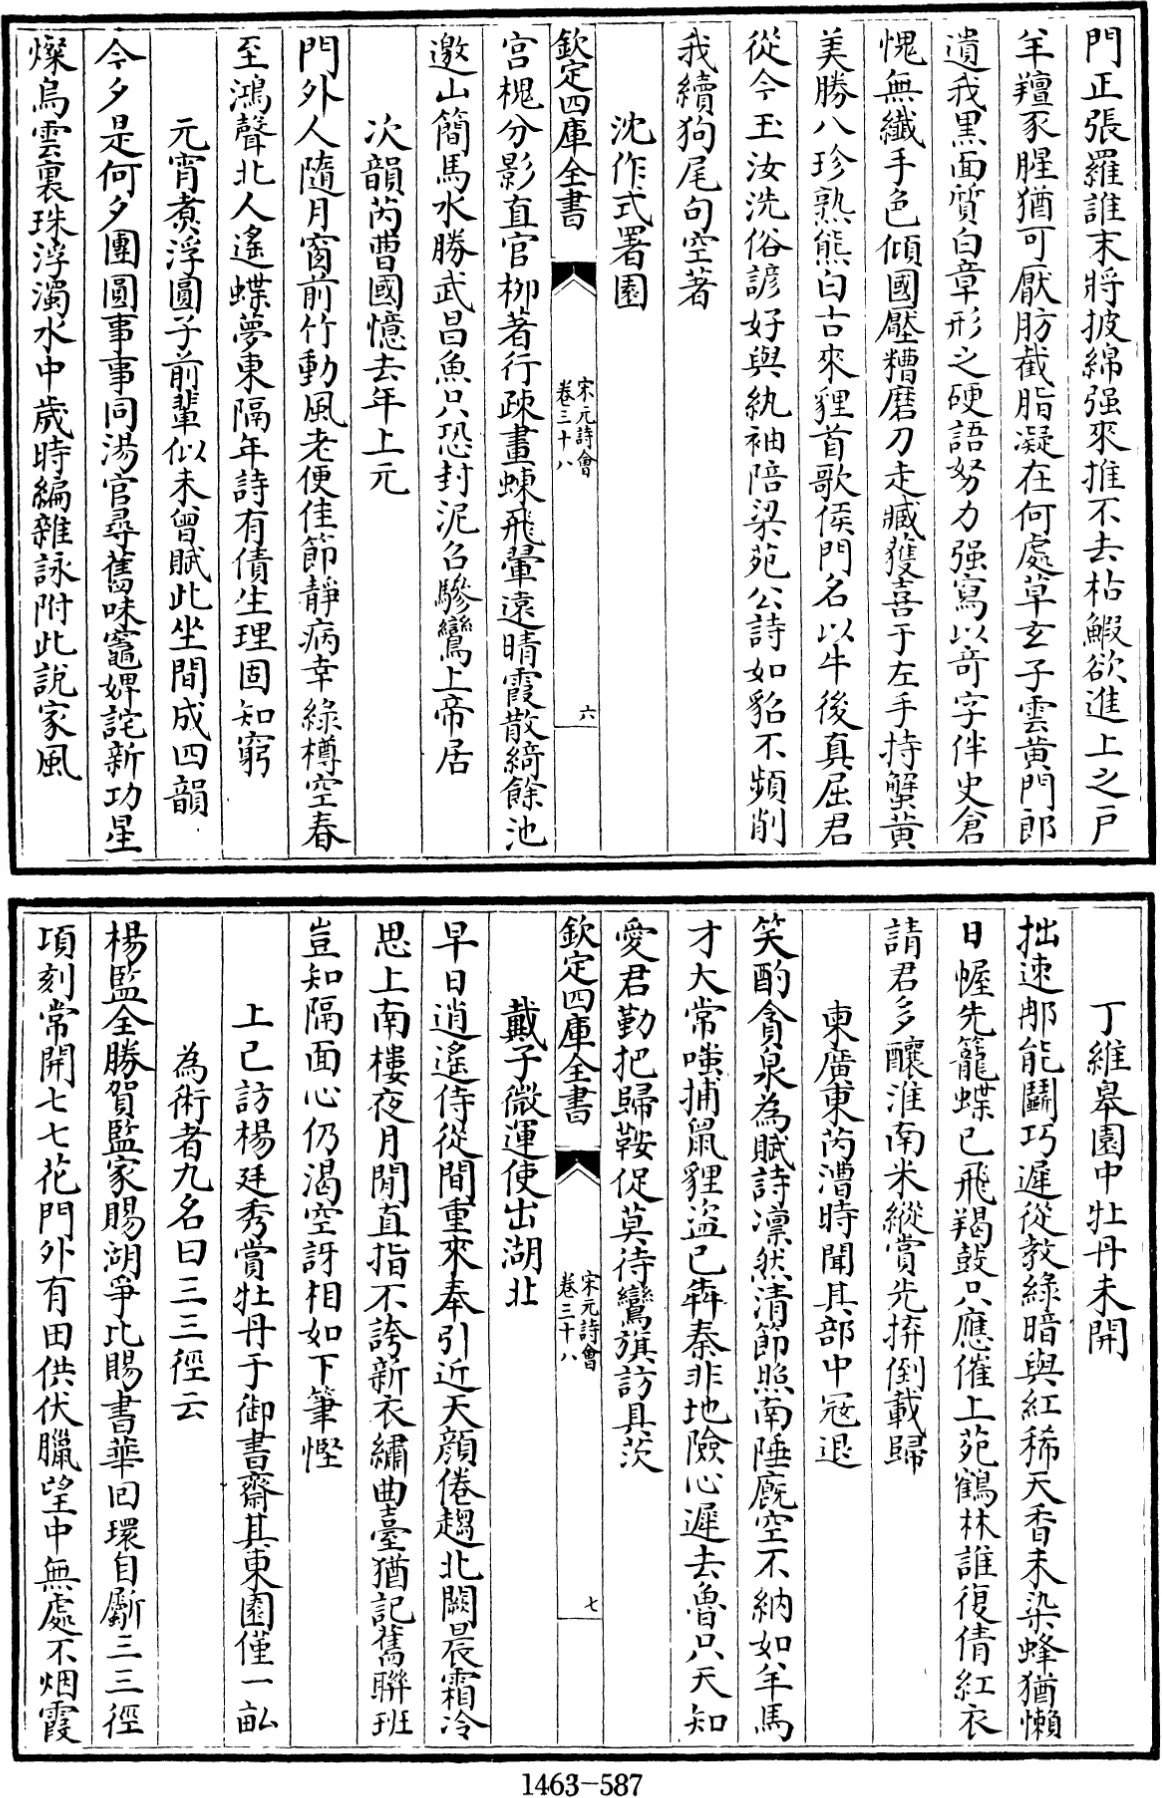 門正張羅誰末將披綿强來推不去枯鰕欲進上之戸
羊羶豕腥猶可厭肪截脂凝在何處草玄子雲黃門郎
遺我黒面質白章形之硬語努力强寫以奇字伴史倉
愧無纖手色傾國壓糟磨刀走臧獲喜于左手持蟹黃
美勝八珍熟熊白古來貍首歌侯門名以牛後真屈君
從今玉汝洗俗諺好與紈袖陪梁苑公詩如貂不頻削
我續狗尾句空著
沈作式署園
欽定四庫全書
宋元詩會
卷三十八
六
宫槐分影直官栁著行疎畫蝀飛翬遠晴霞散綺餘池
邀山簡馬水勝武昌魚只恐封泥召驂鸞上帝居
次韻芮曹國憶去年上元
門外人隨月窗前竹動風老便佳節靜病幸緑樽空春
至鴻聲北人遙蝶夢東隔年詩有債生理固知窮
元宵煮浮圓子前輩似未曾賦此坐間成四韻
今夕是何夕團圓事事同湯官尋舊味竈婢詫新功星
燦烏雲裏珠浮濁水中歲時編雜詠附此說家風
丁維皋園中牡丹未開
拙速那能鬭巧遲從教緑暗與紅稀天香未染蜂猶懶
日幄先籠蝶已飛羯鼓只應催上苑鶴林誰復倩紅衣
請君多釀淮南米縱賞先拚倒載歸
柬廣東芮漕時聞其部中冦退
笑酌貪泉為賦詩凛然清節照南陲廐空不納如羊馬
才大常嗤捕鼠貍盜已犇秦非地險心遲去魯只天知
愛君勤把歸鞍促莫待鸞旗訪具茨
欽定四庫全書
宋元詩會
卷三十八
七
戴子微運使出湖北
早日逍遙侍從間重來奉引近天顔倦趨北闕晨霜冷
思上南樓夜月閒直指不誇新衣繡曲臺猶記舊聨班
豈知隔面心仍渴空訝相如下筆慳
上巳訪楊廷秀賞牡丹于御書齋其東園僅一畝
為術者九名曰三三徑云
楊監全勝賀監家賜湖爭比賜書華囘環自斸三三徑
項刻常開七七花門外有田供伏臘望中無處不烟霞
1463-587